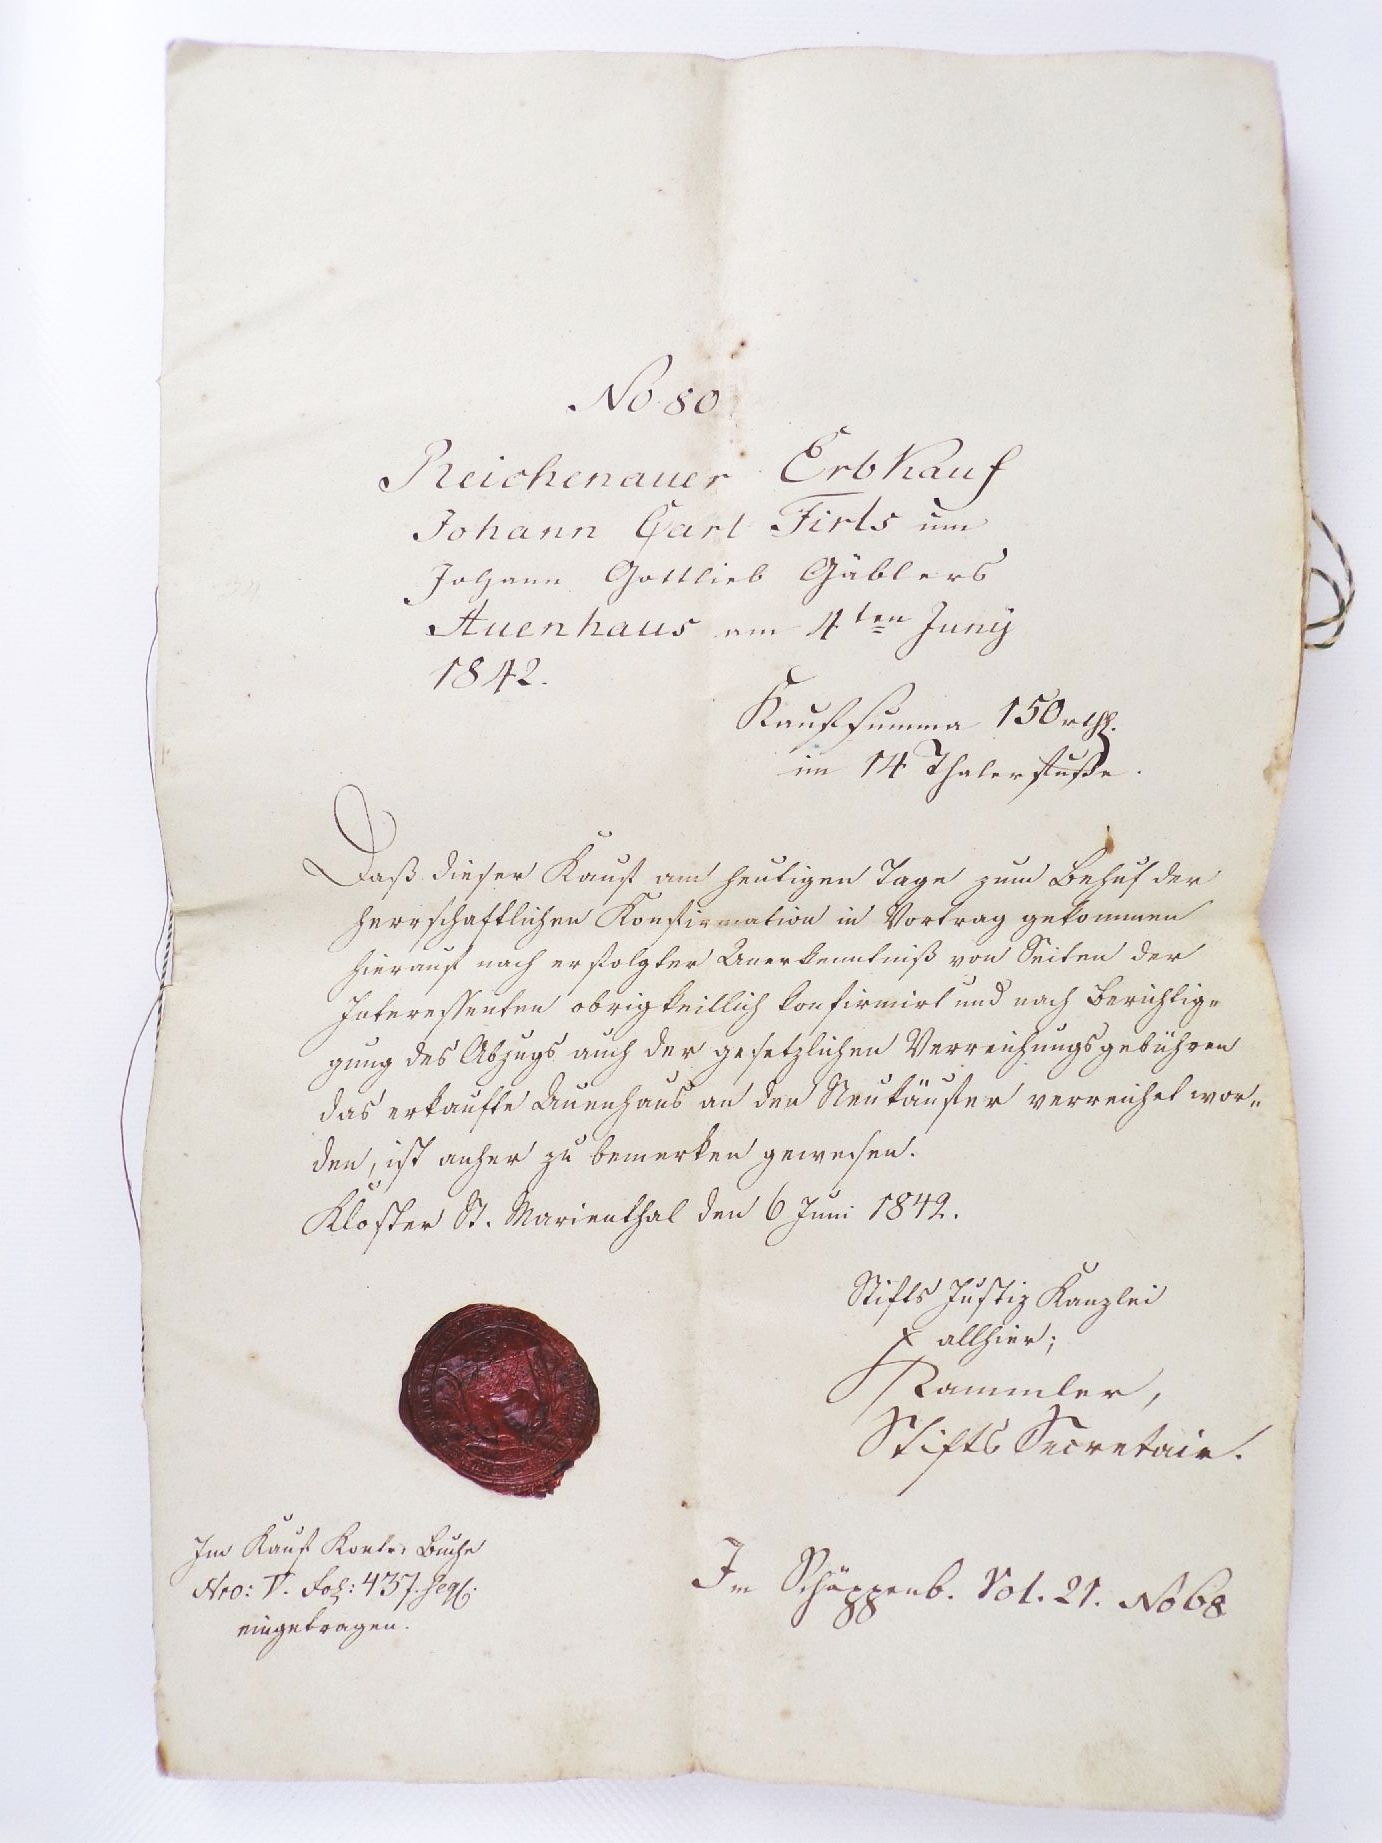 No 80
Reichenauer Erbkauf
Johann Carl Firls um
Johann Gottlieb Gäblers
Auenhaus am 4ten Juny
1842.
Kaufsumma 150 rthl.
im 14 Thalerfuße.
Daß dieser Kauf am heutigen Tage zum Behuf der
herrschaftlichen Konfirmation in Vortrag gekommen
hierauf nach erfolgter Anerkenntniß von Seiten der
Interessenten obrigkeitlich konfirmirt und nach Berichti=
gung des Abzugs auch der gesetzlichen Verreichungsgebühren
das erkaufte Auenhaus an den Neukäufer verreichet wor=
den, ist anher zu bemerken gewesen.
Kloster St. Marienthal den 6 Juni 1842.
Stifts Justiz Kanzlei
allhier;
Rammler,
Stifts Secretair.
Im Kauf Kontr. Buche
Nro: V. Fol: 437. seq.
eingetragen.
Im Schöppenb. Vol. 21. No 68